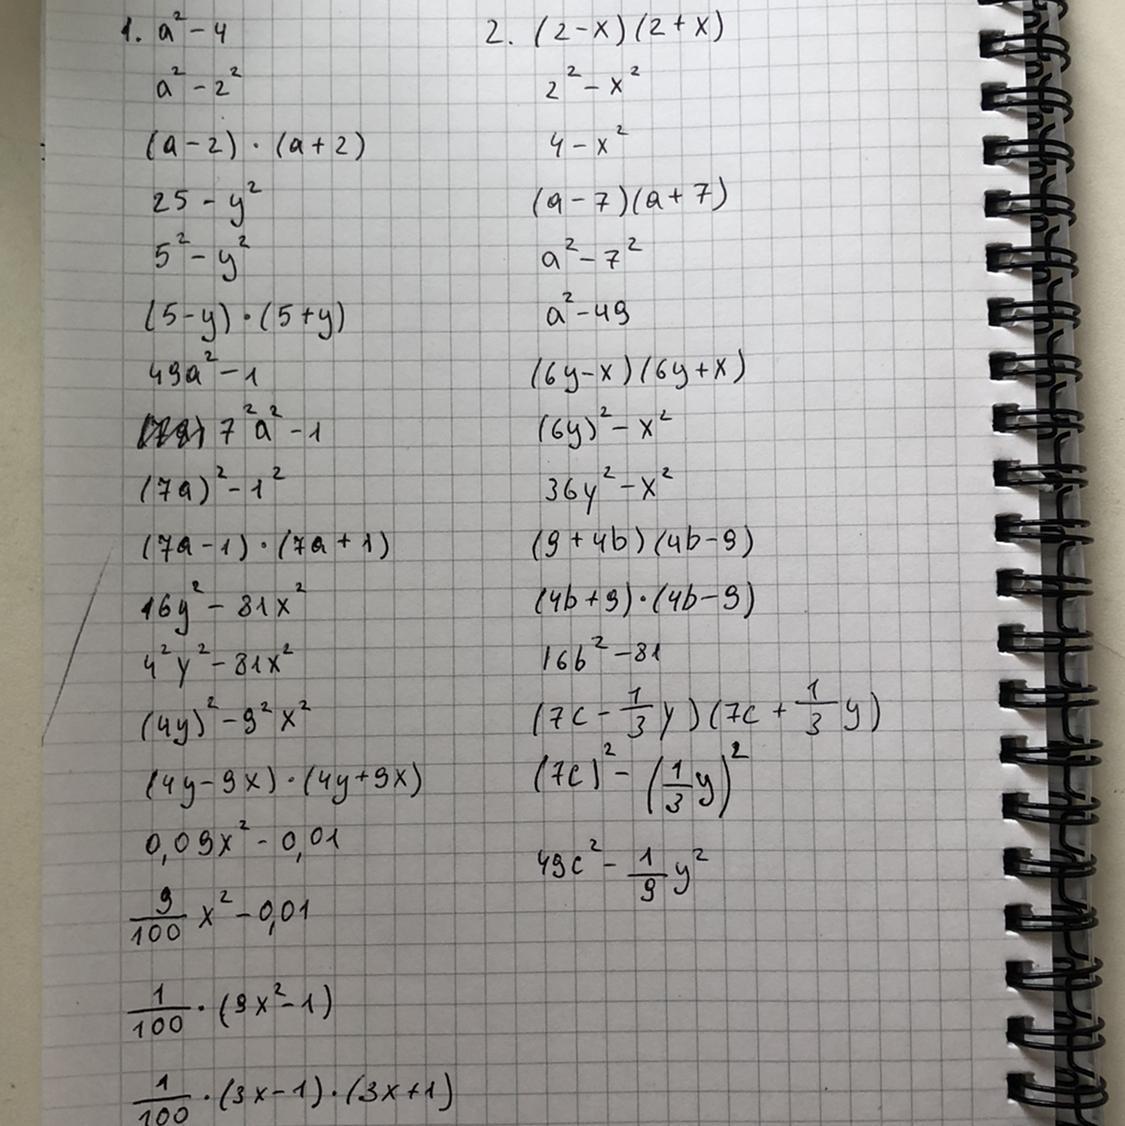 1. a² - 4
a² - 2²
(a - 2) · (a + 2)
25 - y²
5² - y²
(5 - y) · (5 + y)
49a² - 1
7²a² - 1
(7a)² - 1²
(7a - 1) · (7a + 1)
16y² - 81x²
4²y² - 81x²
(4y)² - 9²x²
(4y - 9x) · (4y + 9x)
0,09x² - 0,01
9/100 x² - 0,01
1/100 · (9x² - 1)
1/100 · (3x - 1) · (3x + 1)
2. (2 - x)(2 + x)
2² - x²
4 - x²
(a - 7)(a + 7)
a² - 7²
a² - 49
(6y - x)(6y + x)
(6y)² - x²
36y² - x²
(9 + 4b)(4b - 9)
(4b + 9) · (4b - 9)
16b² - 81
(7c - 1/3 y)(7c + 1/3 y)
(7c)² - (1/3 y)²
49c² - 1/9 y²